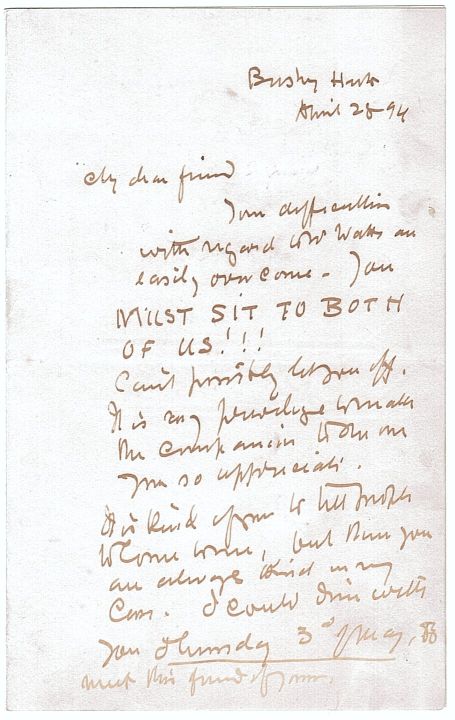 Bushey Herts
April 28 94
My dear friend
Your difficulties
with regard to Watts are
easily over come - You
MUST SIT TO BOTH
OF US!!!
Can't possibly let you off.
It is my privilege to make
the companion to the one
you so appreciate.
It is kind of you to tell people
to come to me, but then you
are always kind in my
case. I could dine with
you Thursday 3d of May, to
meet this friend of yours.